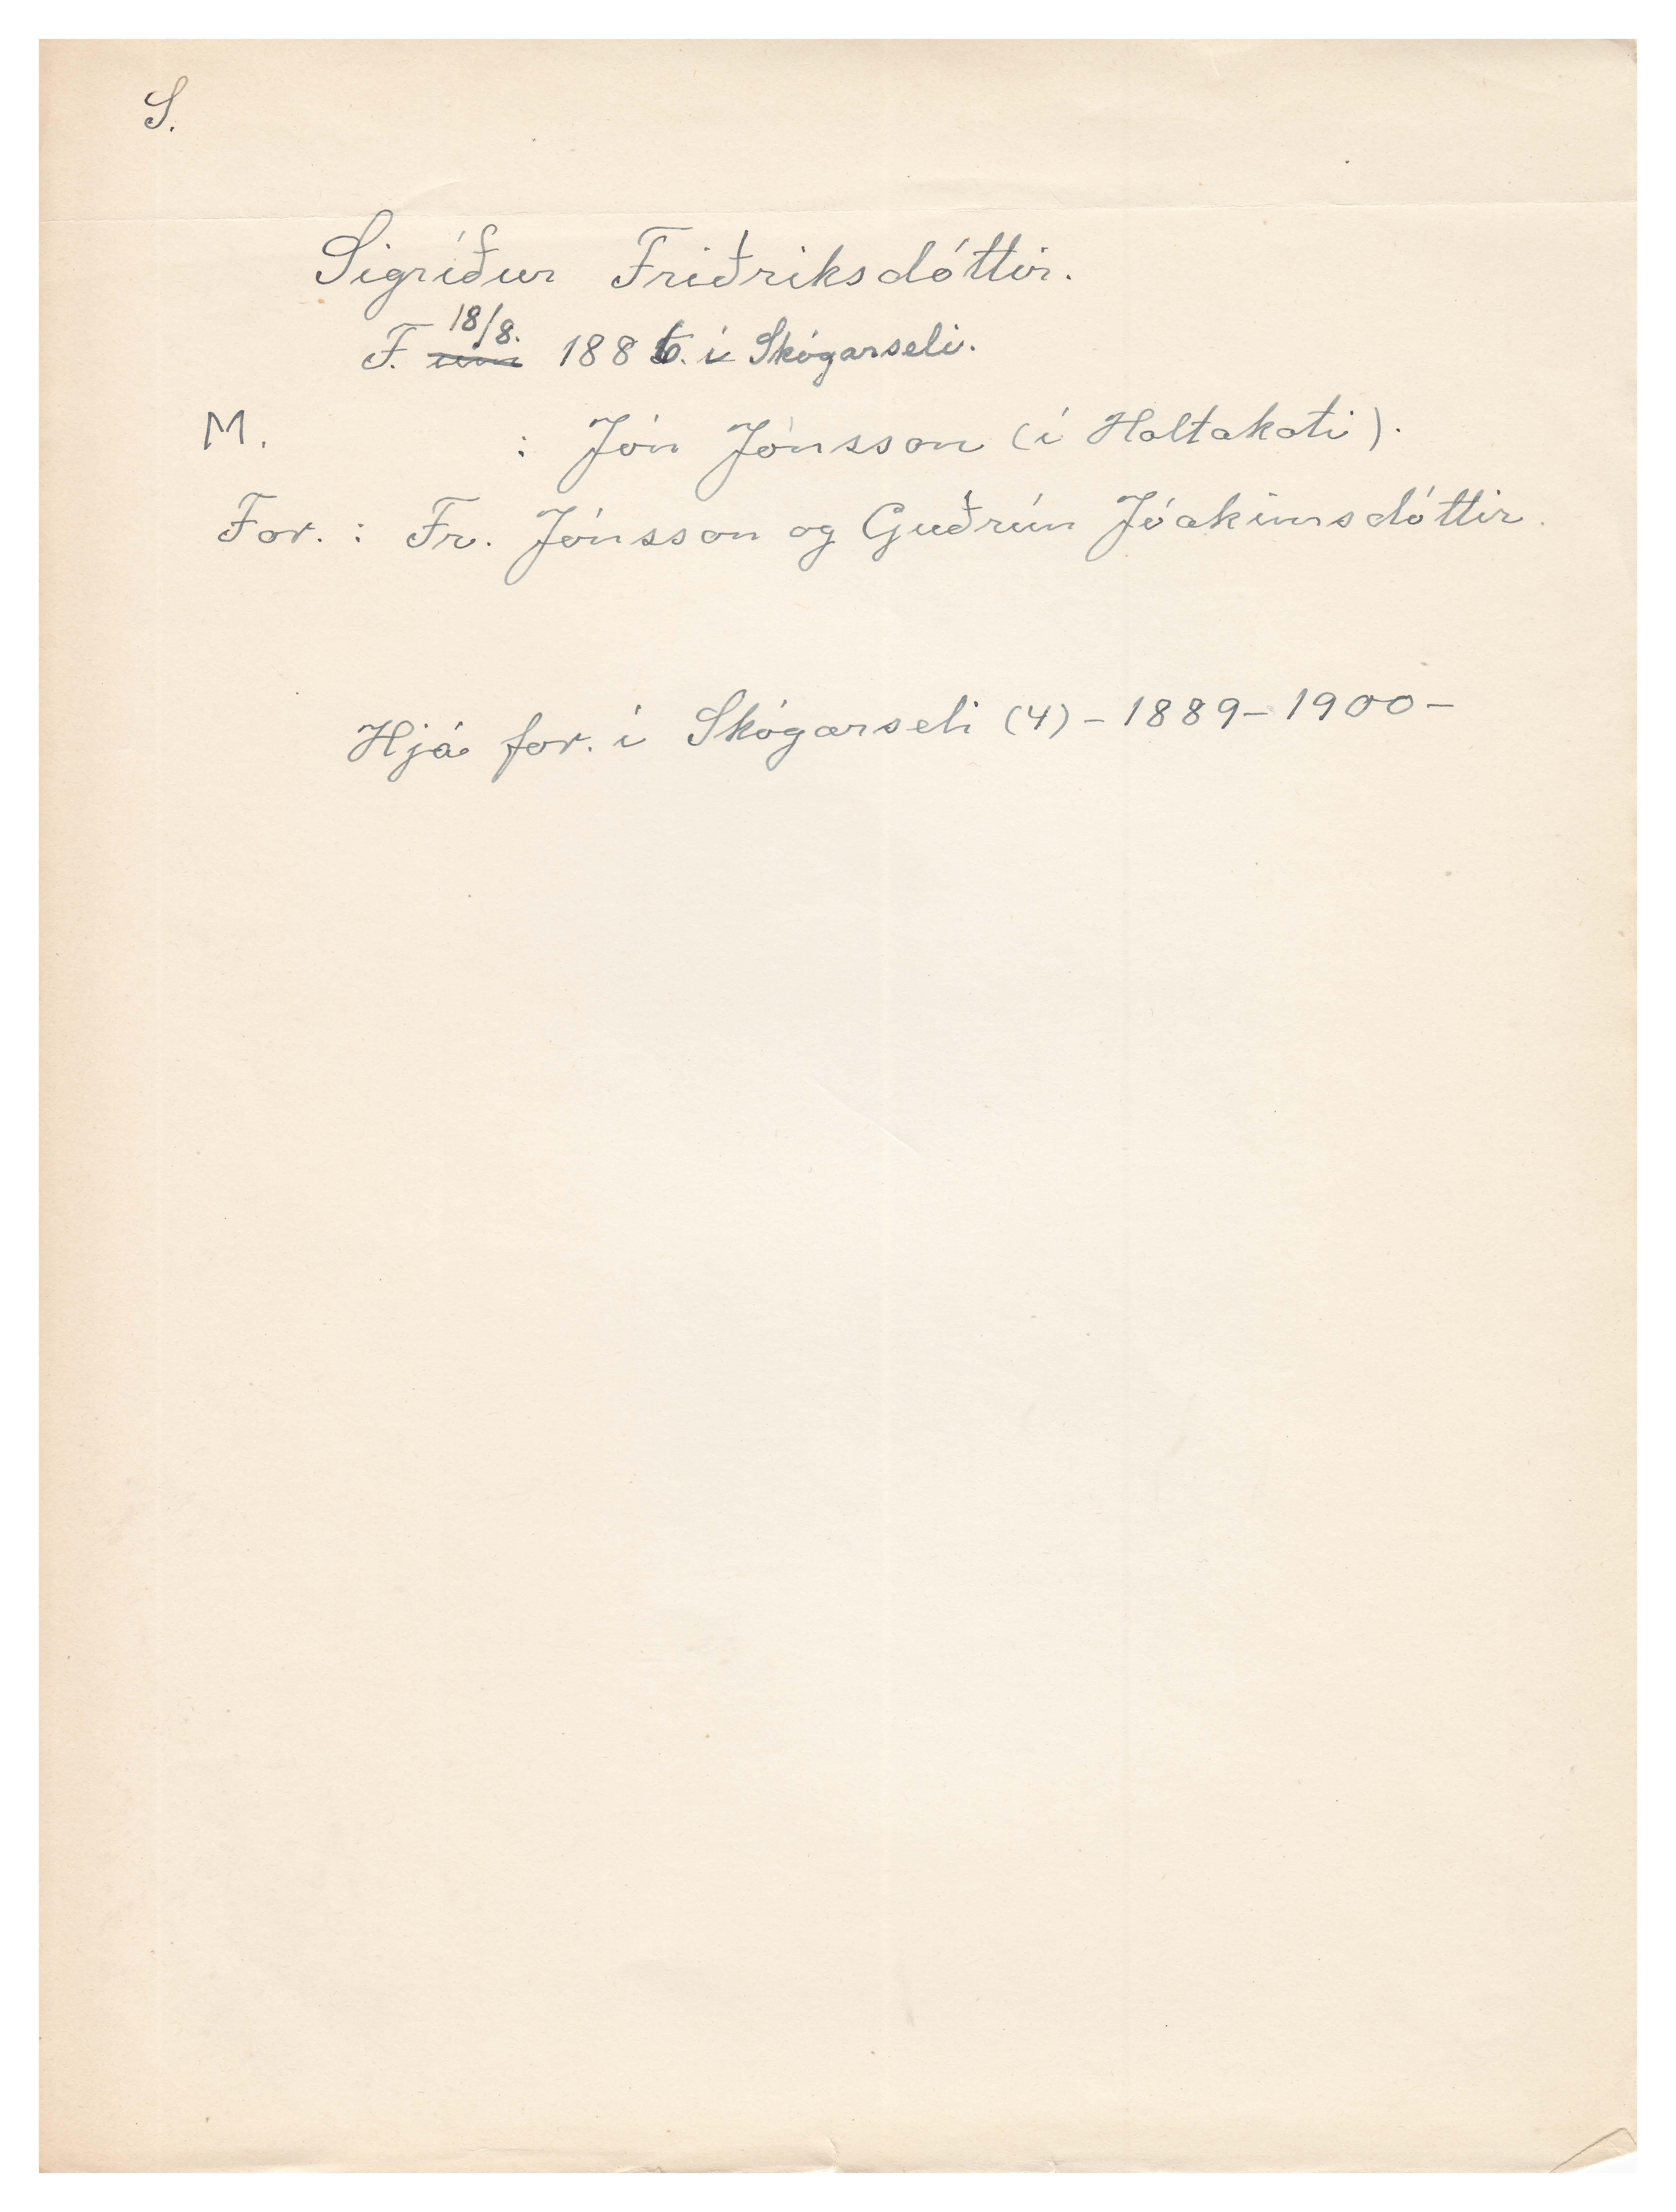 S.
Sigríður Friðriksdóttir.
18/8.
F. um 1886. í Skógarseli.
M. : Jón Jónsson (í Holtakoti).
For. : Fr. Jónsson og Guðrún Jóakimsdóttir.
Hjá for. í Skógarseli (4) - 1889 - 1900 -